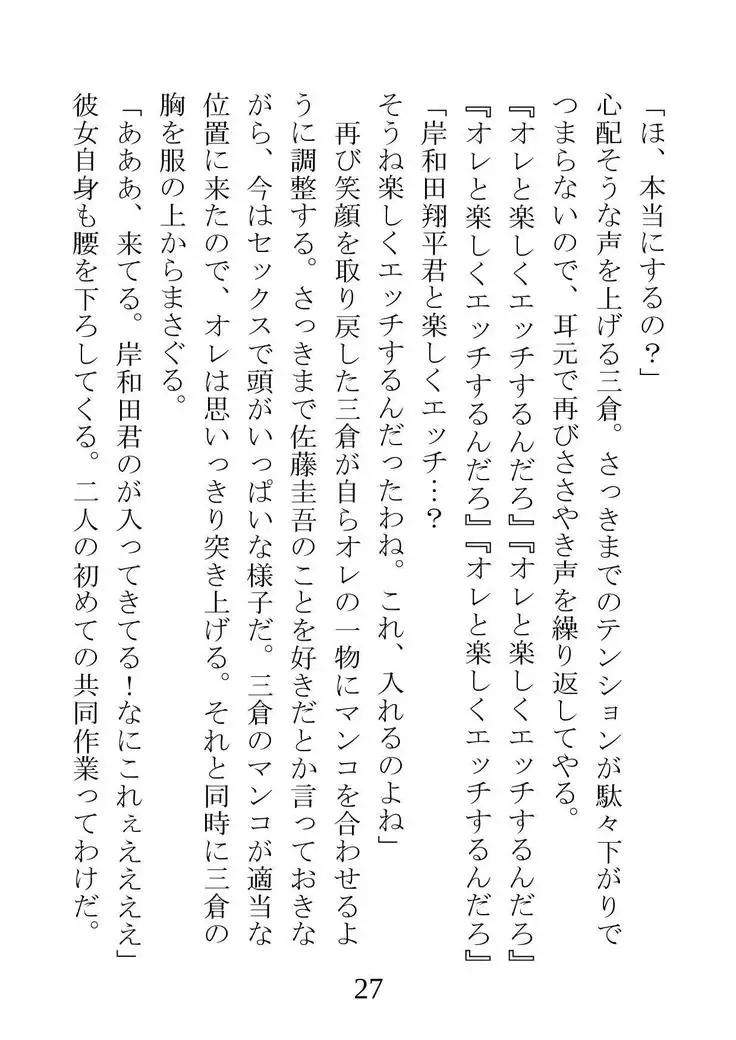 「ほ、本当にするの？」
心配そうな声を上げる三倉。さっきまでのテンションが駄々下がりで
つまらないので、耳元で再びささやき声を繰り返してやる。
『オレと楽しくエッチするんだろ』『オレと楽しくエッチするんだろ』
『オレと楽しくエッチするんだろ』『オレと楽しくエッチするんだろ』
「岸和田翔平君と楽しくエッチ…？
そうね楽しくエッチするんだったわね。これ、入れるのよね」
再び笑顔を取り戻した三倉が自らオレの一物にマンコを合わせるよ
うに調整する。さっきまで佐藤圭吾のことを好きだとか言っておきな
がら、今はセックスで頭がいっぱいな様子だ。三倉のマンコが適当な
位置に来たので、オレは思いっきり突き上げる。それと同時に三倉の
胸を服の上からまさぐる。
「あああ、来てる。岸和田君のが入ってきてる！なにこれぇえええええ」
彼女自身も腰を下ろしてくる。二人の初めての共同作業ってわけだ。
27